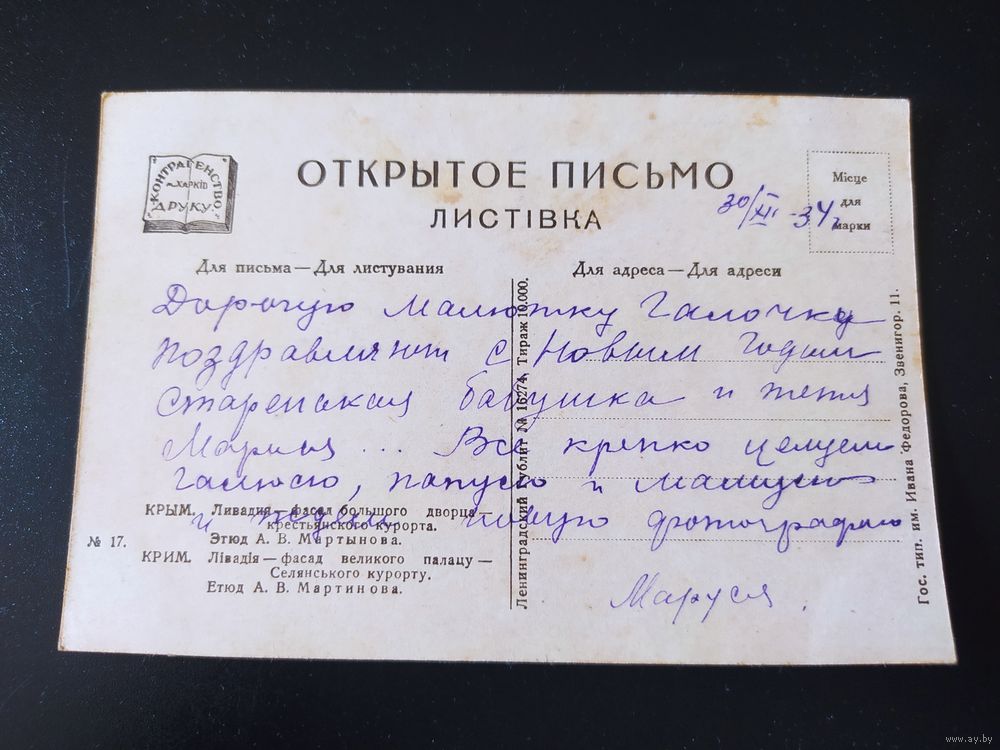 КОНТРАГЕНСТВО
м. ХАРКІВ
ДРУКУ
ОТКРЫТОЕ ПИСЬМО
ЛИСТІВКА
Місце
для
марки
30/XII-34г
Для письма — Для листування
Для адреса — Для адреси
Дорогую Малютку Галочку
поздравляют с Новым годом
старенькая бабушка и тетя
Маруся ... Все крепко целуем
Галюсю, папусю и мамусю
и ждем новую фотографию
Маруся.
КРЫМ. Ливадия — фасад большого дворца —
крестьянского курорта.
Этюд А. В. Мартынова.
№ 17.
КРИМ. Лівадія — фасад великого палацу —
Селянського курорту.
Етюд А. В. Мартинова.
Ленинградский Гублит № 16274, Тираж 10.000.
Гос. тип. им. Ивана Федорова, Звенигор. 11.
www.ay.by